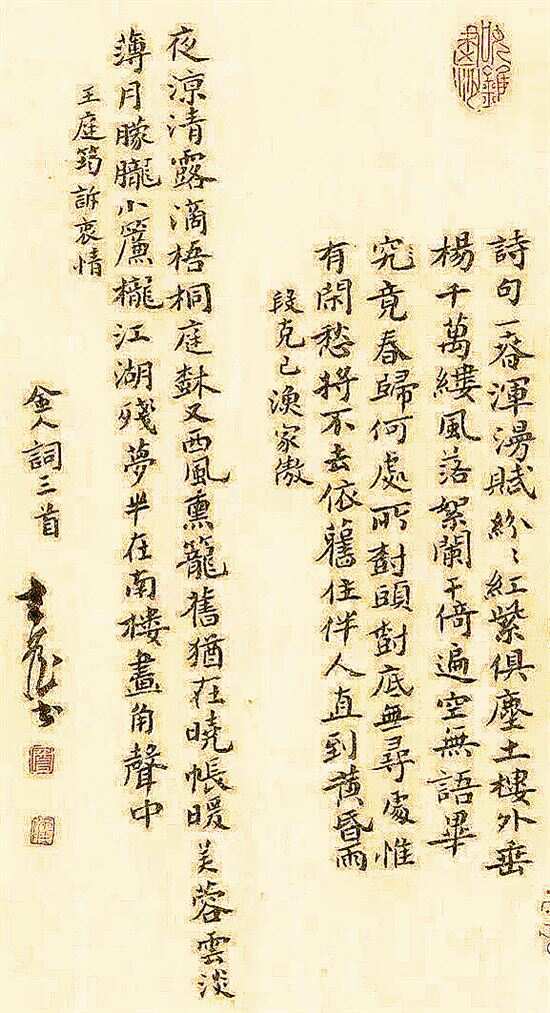 詩句一春渾漫賦紛〻紅紫俱塵土樓外垂
楊千萬縷風落絮闌干倚遍空無語畢
究竟春歸何處所樹頭樹底無尋處惟
有閑愁將不去依舊住伴人直到黃昏雨
段克己漁家傲
夜涼清露滴梧桐庭樹又西風熏籠舊猶在曉帳暖芙蓉雲淡
薄月朦朧小簾櫳江湖殘夢半在南樓畫角聲中
王庭筠訴衷情
金人詞三首